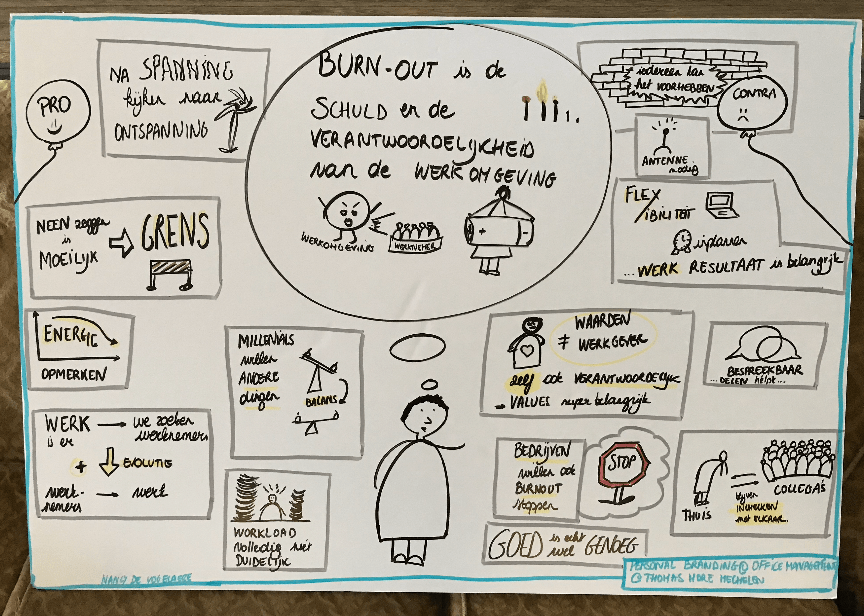 BURN-OUT is de
SCHULD en de
VERANTWOORDELIJKHEID
van de WERKOMGEVING
WERKOMGEVING
WERKNEMER
+
-
PRO
NA SPANNING
kijken naar
ONTSPANNING
NEEN zeggen
is
MOEILIJK
GRENS
ENERGIE
OPMERKEN
WERK → we zoeken
is er werknemers
+ EVOLUTIE
werk-
nemers → werk
MILLENIALS
willen
ANDERE
dingen
BALANS
WORKLOAD
volledig niet
DUIDELIJK
iedereen kan
het VOORHEBBEN
CONTRA
ANTENNE
nodig
FLEX
IBILITEIT
inplannen
...WERK RESULTAAT is belangrijk
WAARDEN
≠
WERKGEVER
zelf ook VERANTWOORDELIJK
→ VALUES super belangrijk
BESPREEKBAAR
...DELEN helpt...
BEDRIJVEN
willen ook
BURNOUT
stoppen
STOP
THUIS
COLLEGA'S
blijven
INCHECKEN
met ELKAAR..
GOED is echt
wel GENOEG
PERSONAL BRANDING @ OFFICE MANAGEMENT
@ THOMAS MORE MECHELEN